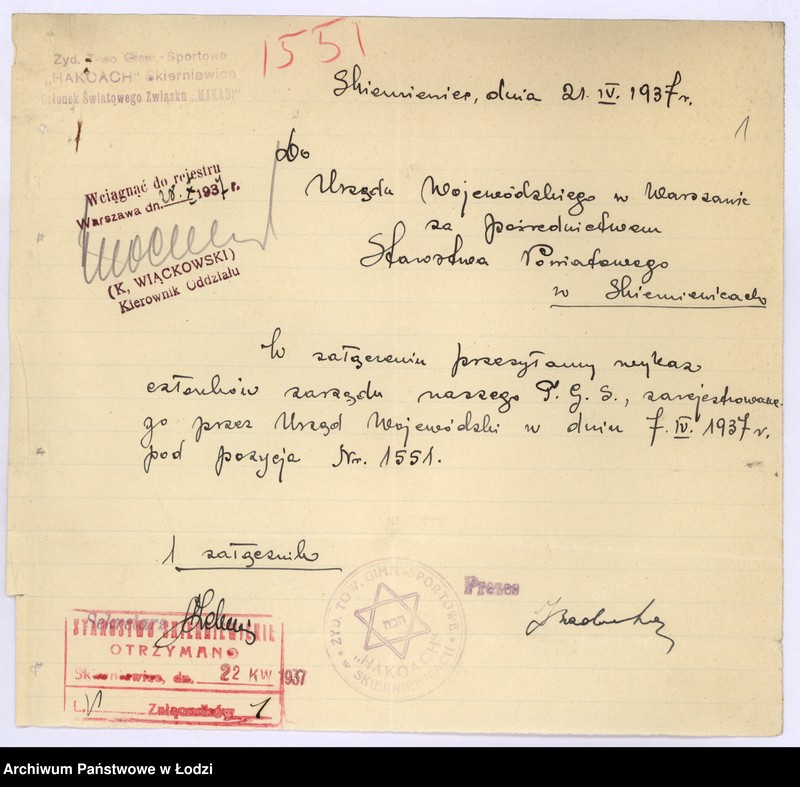 1551
Żyd. T-wo Gimn.-Sportowe
„HAKOACH" Skierniewice
Członek Światowego Związku „MAKABI"
Skierniewice, dnia 21. IV. 1937 r.
1
Do
Urzędu Wojewódzkiego w Warszawie
za pośrednictwem
Starostwa Powiatowego
w Skierniewicach
Wciągnąć do rejestru
Warszawa dn. 28. X 1937 r.
(K. WIĄCKOWSKI)
Kierownik Oddziału
W załączeniu przesyłamy wykaz
członków zarządu naszego T. G. S., zarejestrowane-
go przez Urząd Wojewódzki w dniu 7. IV. 1937 r.
pod pozycją Nr. 1551.
1 załącznik
Sekretarz
Prezes
ŻYD. TOW. GIMN.-SPORTOWE
„HAKOACH"
w SKIERNIEWICACH
הכח
STAROSTWO SKIERNIEWICKIE
OTRZYMANO
Skierniewice, dn. 22 KW 1937
L. Załączników 1
Archiwum Państwowe w Łodzi